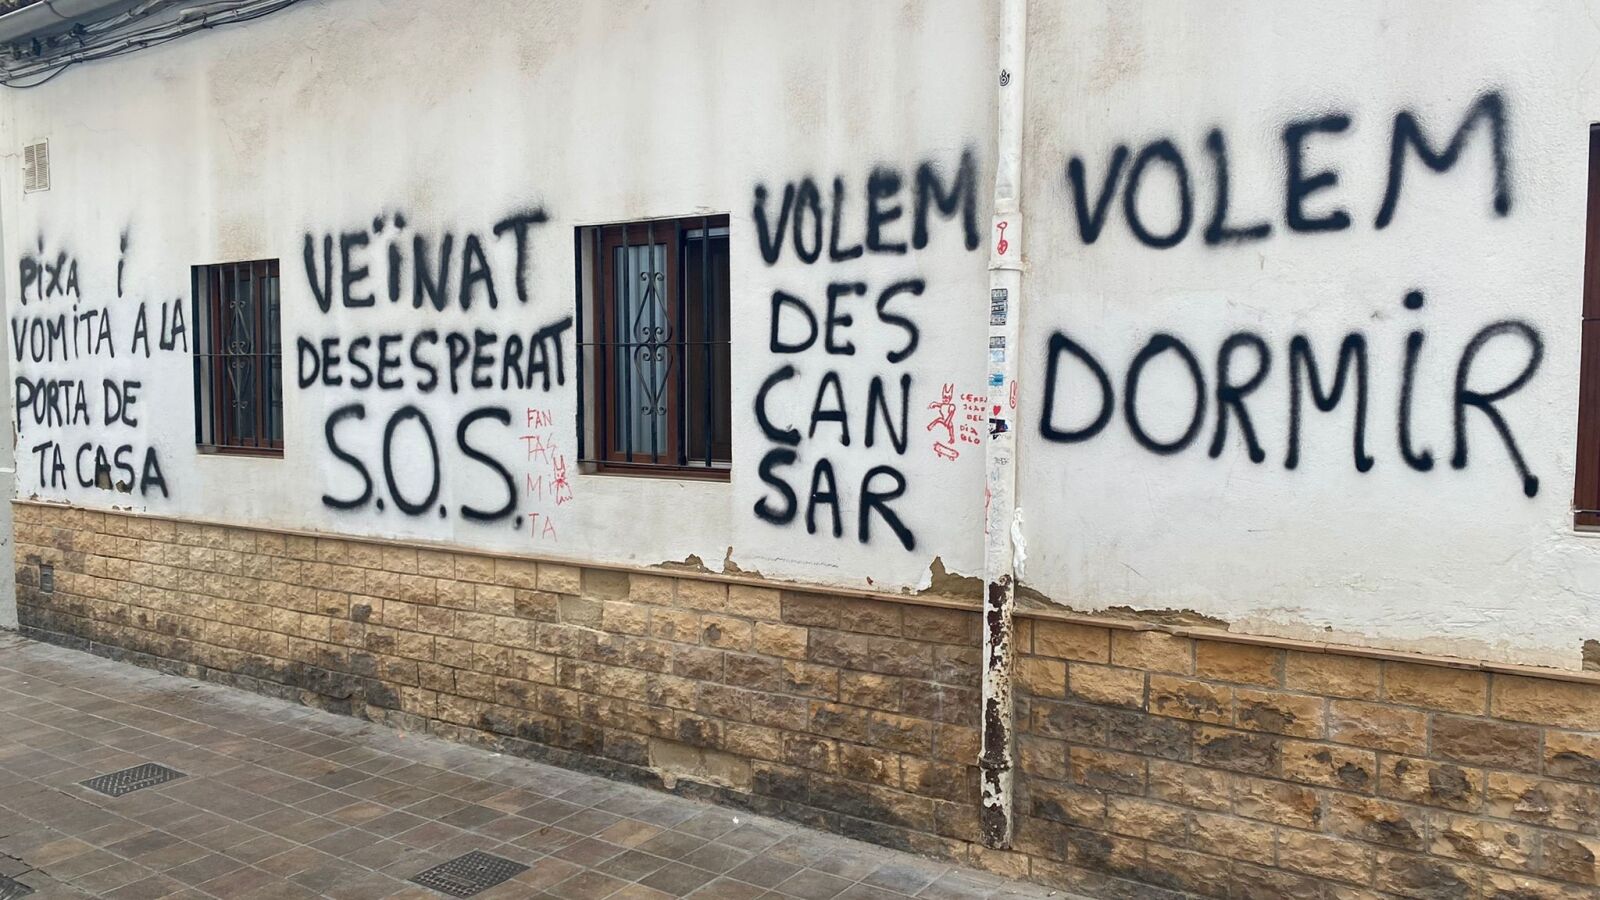 PIXA i
VOMITA A LA
PORTA DE
TA CASA
VEÏNAT
DESESPERAT
S.O.S.
FAN
TAS
Mi
TA
VOLEM
DES
CAN
SAR
DEL
DIA
BLO
VOLEM
DORMIR